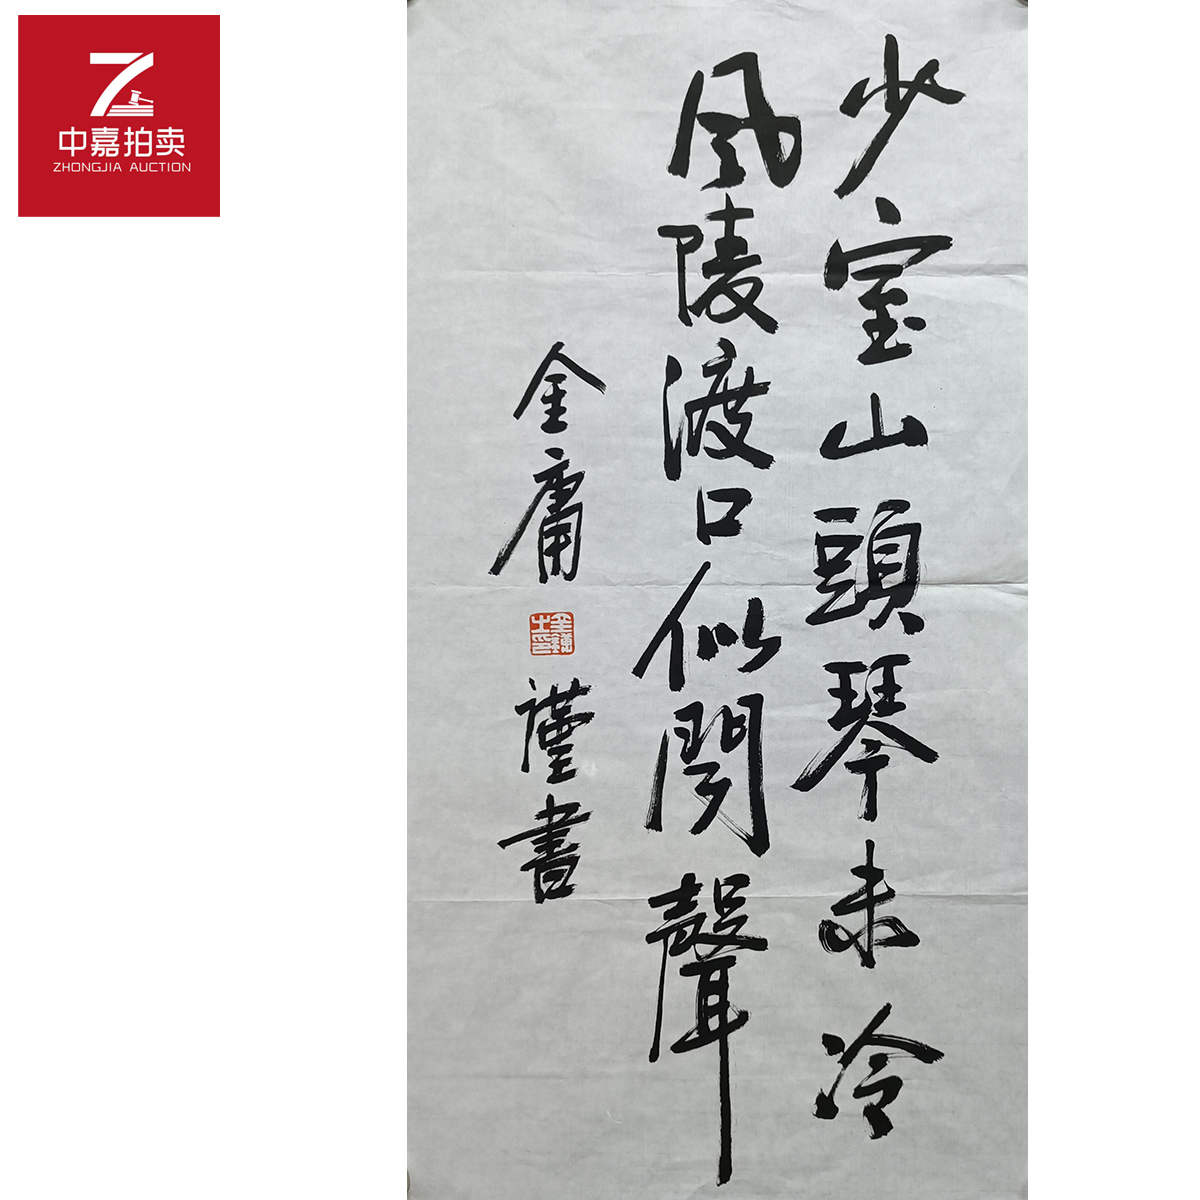 中嘉拍卖
ZHONGJIA AUCTION
少室山頭琴未冷
風陵渡口似聞聲
金庸
謹書